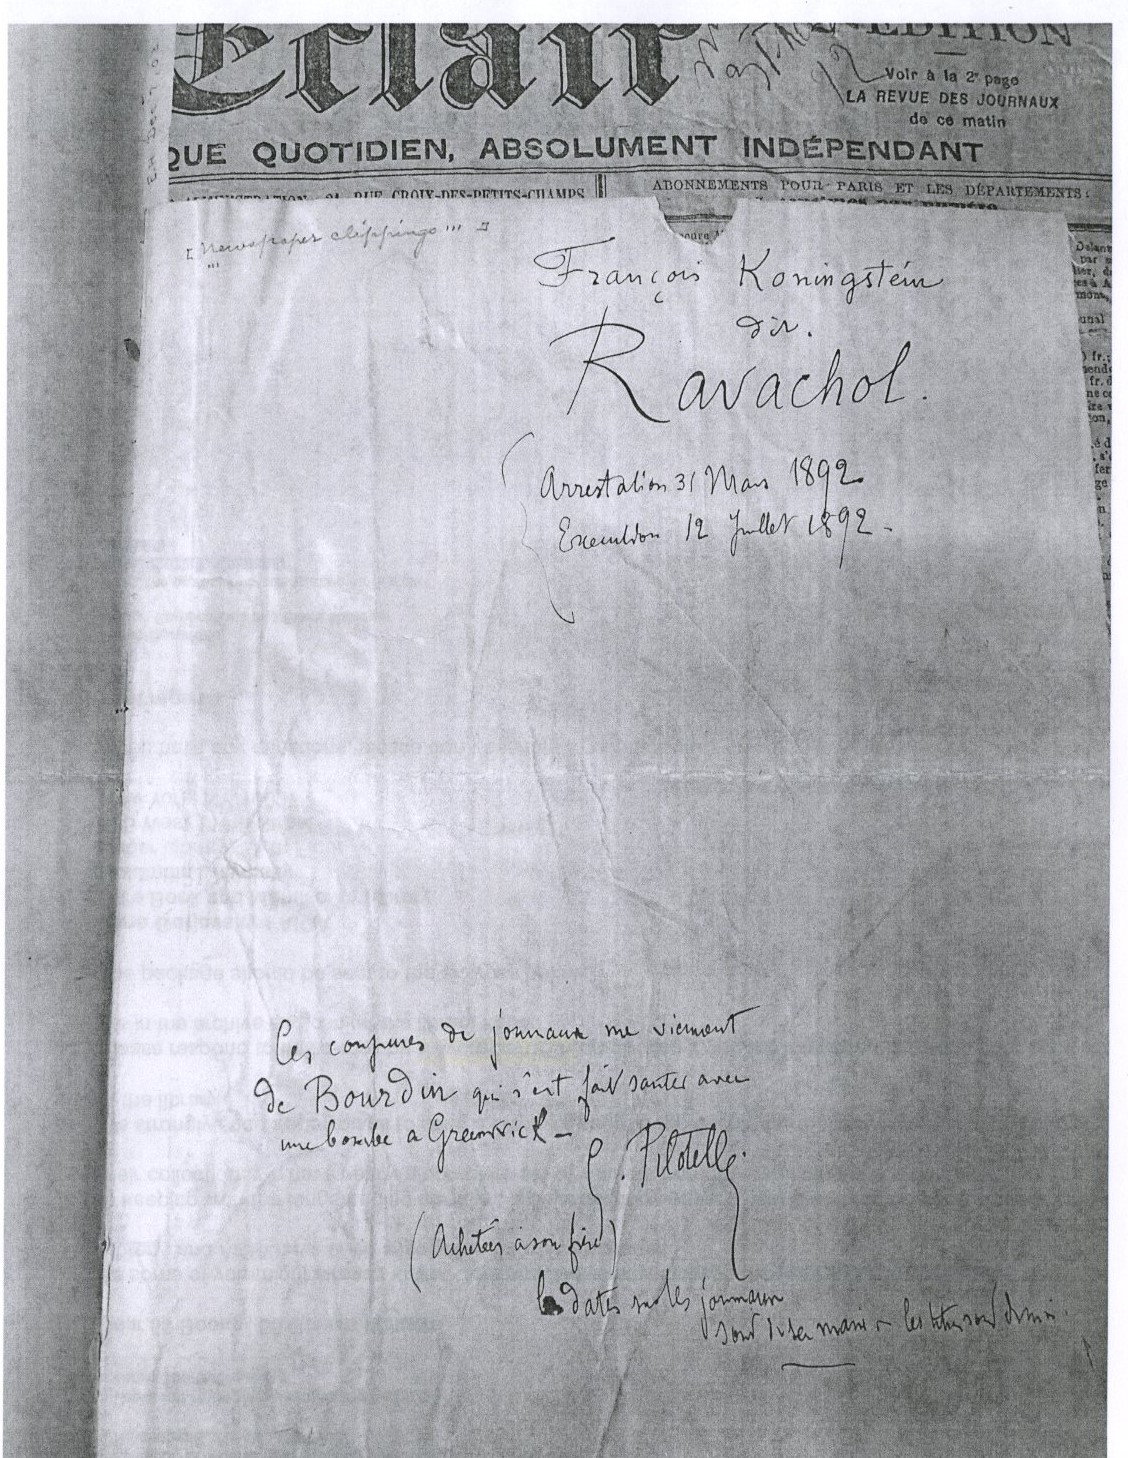 Éclair
EDITION
Voir à la 2e page
LA REVUE DES JOURNAUX
de ce matin
QUE QUOTIDIEN, ABSOLUMENT INDÉPENDANT
RUE CROIX-DES-PETITS-CHAMPS
ABONNEMENTS POUR PARIS ET LES DÉPARTEMENTS:
[Newspaper clippings ... ]
François Koningstein
dit.
Ravachol.
Arrestation 31 Mars 1892
Execution 12 Juillet 1892 -
Ces coupures de journaux me viennent
de Bourdin qui s'est fait sauter avec
une bombe a Greenwich -
G. Pilotelle.
(Achetées à son frère)
les dates sur les journaux
sont de sa main